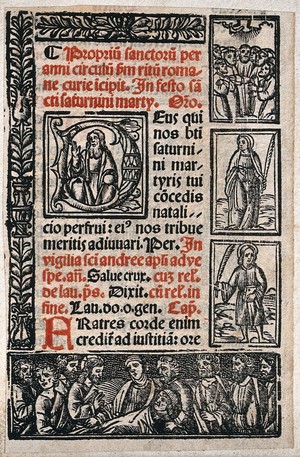 ¶ Propriũ sanctorũ per
anni circulũ ẜm ritũ roma⸗
ne curie īcipit. In festo sā
cti saturnini marty. Oro.
DEus qui
nos bti
saturni⸗
ni mar⸗
tyris tui
cōcedis
natali⸗⸗
cio perfrui: eiꝰ nos tribue
meritis adiuuari. Per. In
vigilia sci andree apli ad ve
spe. añ. Salue crux. cuȝ rel.
de lau. ps. Dixit. cũ rel. in
fine. Lau. do. o. gen. Cap.
FRatres corde enim
credit̃ ad iustitiā: ore